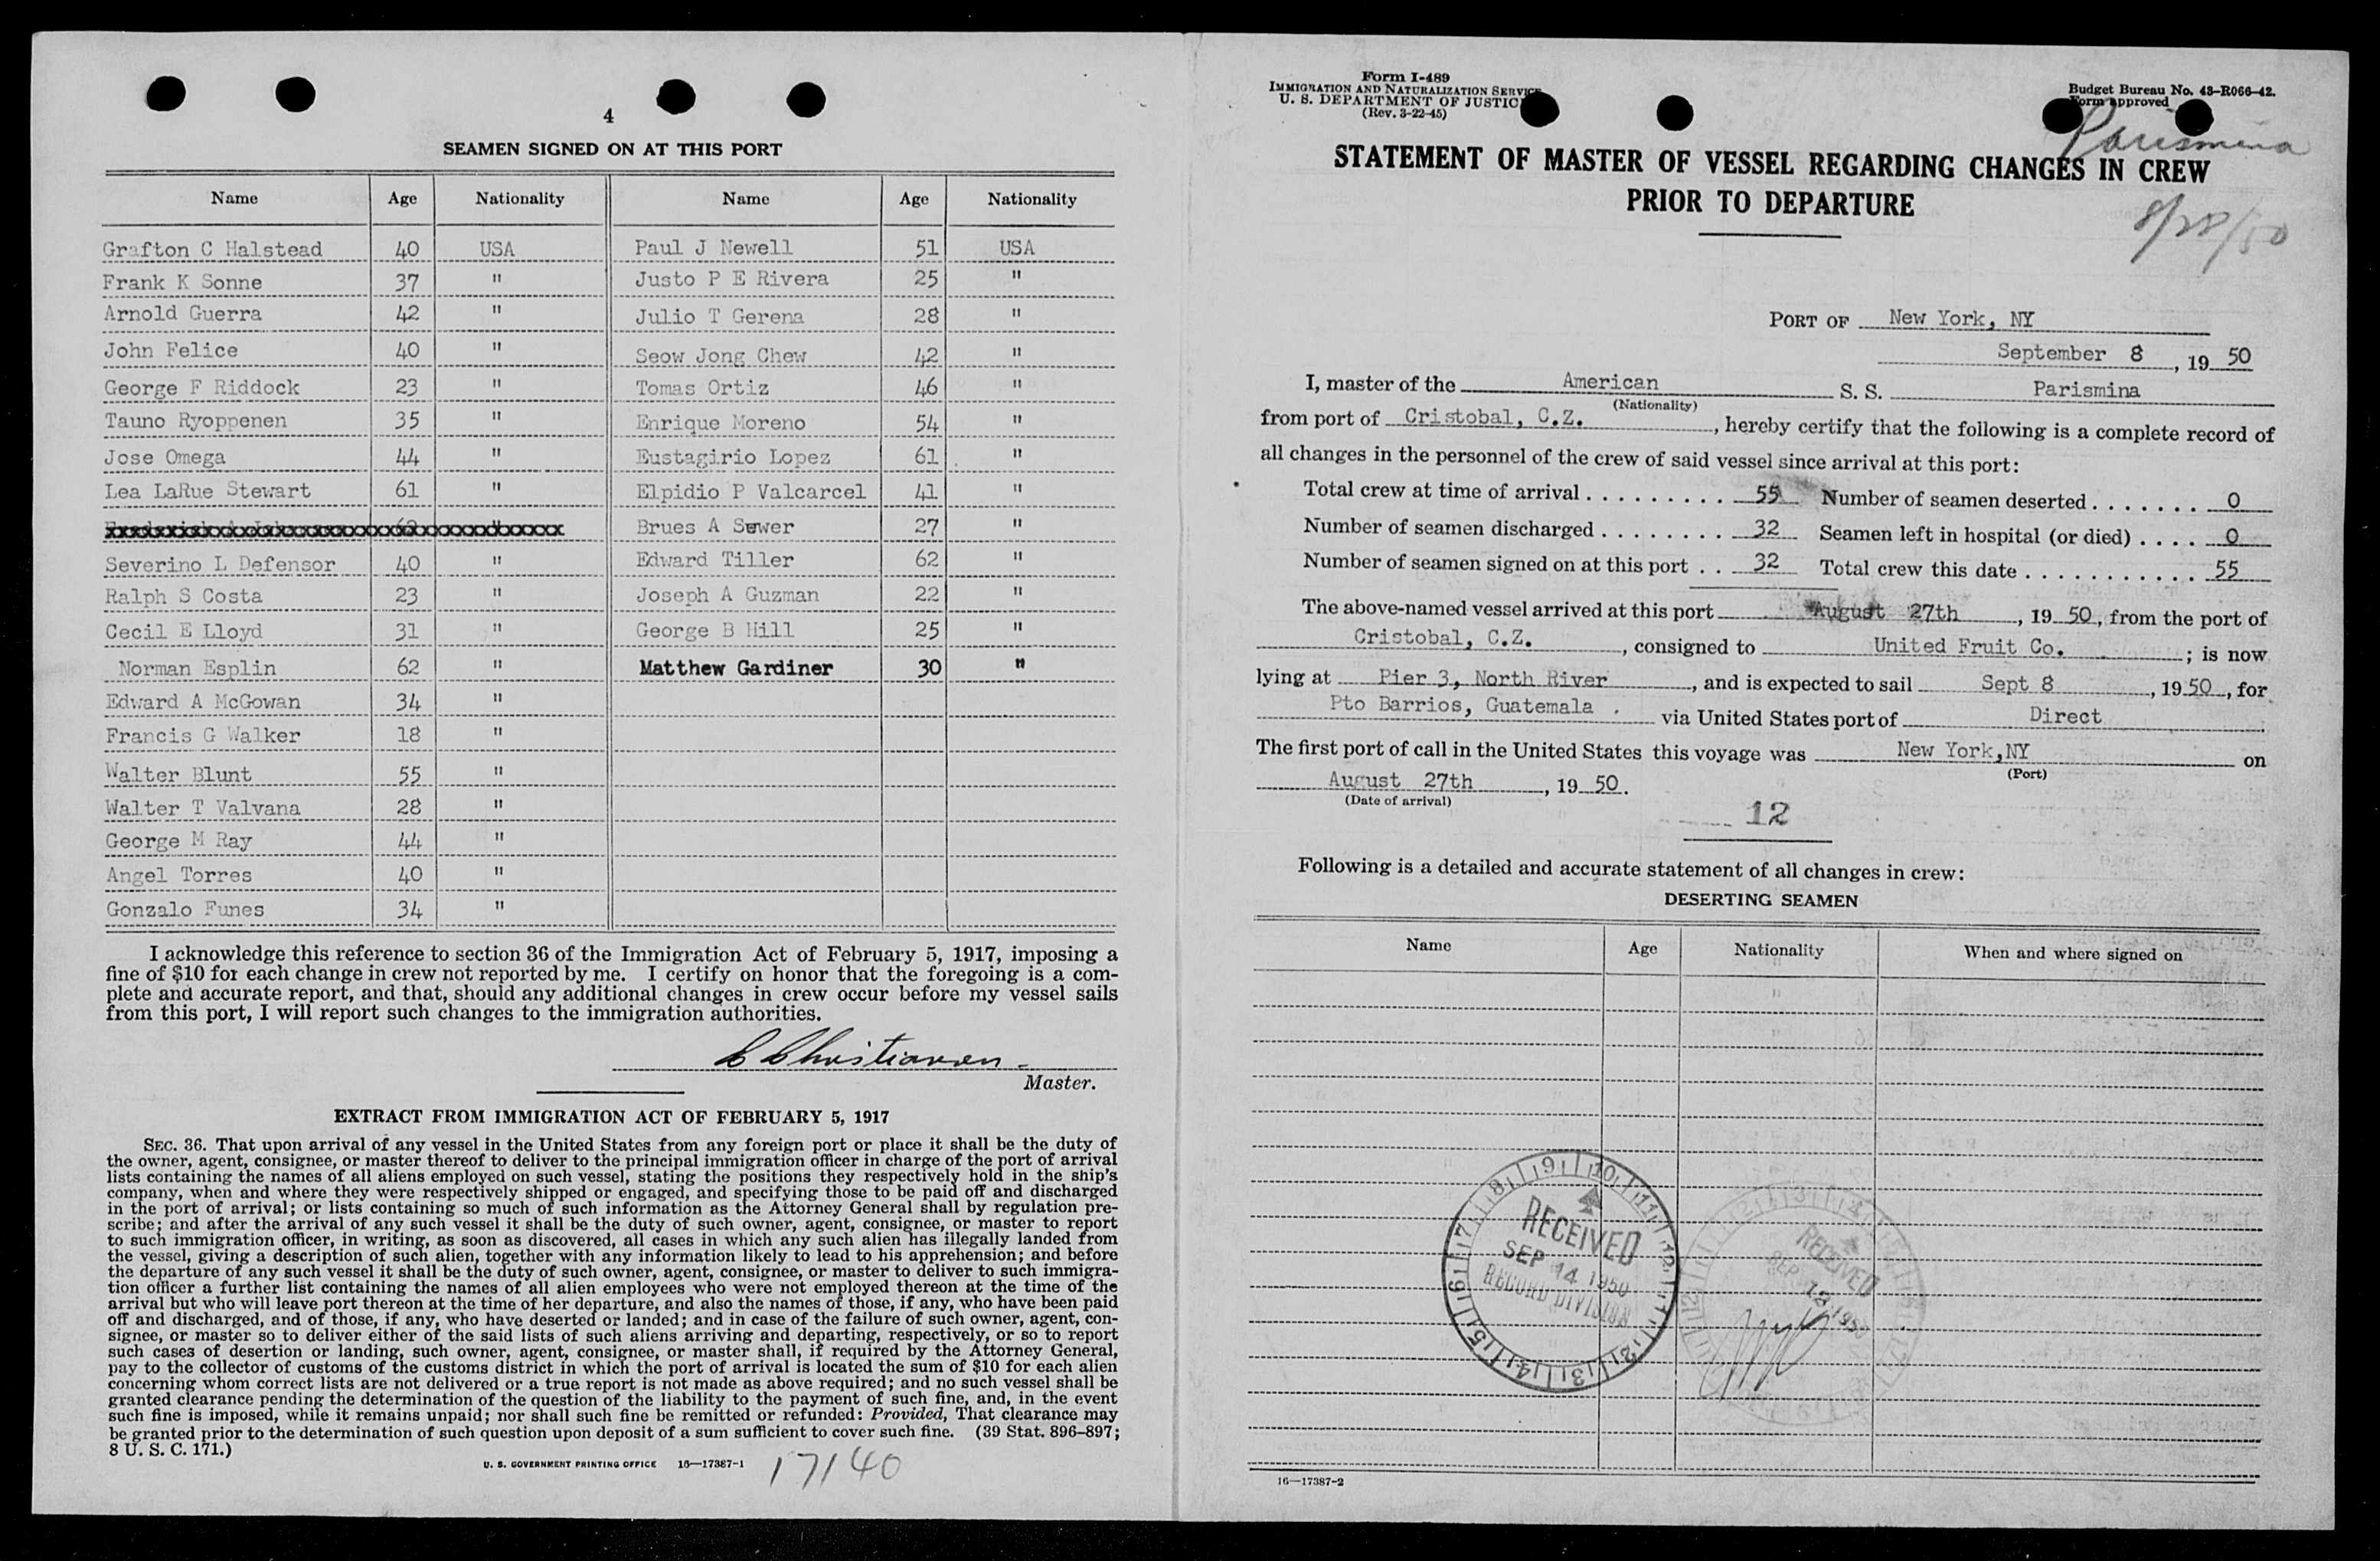 4
SEAMEN SIGNED ON AT THIS PORT
Name Age Nationality Name Age Nationality
Grafton C Halstead 40 USA Paul J Newell 51 USA
Frank K Sonne 37 " Justo P E Rivera 25 "
Arnold Guerra 42 " Julio T Gerena 28 "
John Felice 40 " Seow Jong Chew 42 "
George F Riddock 23 " Tomas Ortiz 46 "
Tauno Ryoppenen 35 " Enrique Moreno 54 "
Jose Omega 44 " Eustagirio Lopez 61 "
Lea LaRue Stewart 61 " Elpidio P Valcarcel 41 "
Brues A Sewer 27 "
Severino L Defensor 40 " Edward Tiller 62 "
Ralph S Costa 23 " Joseph A Guzman 22 "
Cecil E Lloyd 31 " George B Hill 25 "
Norman Esplin 62 " Matthew Gardiner 30 "
Edward A McGowan 34 "
Francis G Walker 18 "
Walter Blunt 55 "
Walter T Valvana 28 "
George M Ray 44 "
Angel Torres 40 "
Gonzalo Funes 34 "
I acknowledge this reference to section 36 of the Immigration Act of February 5, 1917, imposing a
fine of $10 for each change in crew not reported by me. I certify on honor that the foregoing is a com-
plete and accurate report, and that, should any additional changes in crew occur before my vessel sails
from this port, I will report such changes to the immigration authorities.
Master.
EXTRACT FROM IMMIGRATION ACT OF FEBRUARY 5, 1917
SEC. 36. That upon arrival of any vessel in the United States from any foreign port or place it shall be the duty of
the owner, agent, consignee, or master thereof to deliver to the principal immigration officer in charge of the port of arrival
lists containing the names of all aliens employed on such vessel, stating the positions they respectively hold in the ship's
company, when and where they were respectively shipped or engaged, and specifying those to be paid off and discharged
in the port of arrival; or lists containing so much of such information as the Attorney General shall by regulation pre-
scribe; and after the arrival of any such vessel it shall be the duty of such owner, agent, consignee, or master to report
to such immigration officer, in writing, as soon as discovered, all cases in which any such alien has illegally landed from
the vessel, giving a description of such alien, together with any information likely to lead to his apprehension; and before
the departure of any such vessel it shall be the duty of such owner, agent, consignee, or master to deliver to such immigra-
tion officer a further list containing the names of all alien employees who were not employed thereon at the time of the
arrival but who will leave port thereon at the time of her departure, and also the names of those, if any, who have been paid
off and discharged, and of those, if any, who have deserted or landed; and in case of the failure of such owner, agent, con-
signee, or master so to deliver either of the said lists of such aliens arriving and departing, respectively, or so to report
such cases of desertion or landing, such owner, agent, consignee, or master shall, if required by the Attorney General,
pay to the collector of customs of the customs district in which the port of arrival is located the sum of $10 for each alien
concerning whom correct lists are not delivered or a true report is not made as above required; and no such vessel shall be
granted clearance pending the determination of the question of the liability to the payment of such fine, and, in the event
such fine is imposed, while it remains unpaid; nor shall such fine be remitted or refunded: Provided, That clearance may
be granted prior to the determination of such question upon deposit of a sum sufficient to cover such fine. (39 Stat. 896-897;
8 U. S. C. 171.)
U. S. GOVERNMENT PRINTING OFFICE 16—17387-1
17140
Form I-489
IMMIGRATION AND NATURALIZATION SERVICE
U. S. DEPARTMENT OF JUSTICE
(Rev. 3-22-45)
Budget Bureau No. 43-R066-42.
Form approved
Parismina
STATEMENT OF MASTER OF VESSEL REGARDING CHANGES IN CREW
PRIOR TO DEPARTURE
8/28/50
PORT OF New York, NY
September 8, 1950
I, master of the American S. S. Parismina
(Nationality)
from port of Cristobal, C.Z., hereby certify that the following is a complete record of
all changes in the personnel of the crew of said vessel since arrival at this port:
Total crew at time of arrival . . . . . . . . . 55 Number of seamen deserted . . . . . . . 0
Number of seamen discharged . . . . . . . . 32 Seamen left in hospital (or died) . . . . 0
Number of seamen signed on at this port . . 32 Total crew this date . . . . . . . . . . . 55
The above-named vessel arrived at this port August 27th, 1950, from the port of
Cristobal, C.Z., consigned to United Fruit Co. ; is now
lying at Pier 3, North River, and is expected to sail Sept 8, 1950, for
Pto Barrios, Guatemala . via United States port of Direct
The first port of call in the United States this voyage was New York,NY on
(Port)
August 27th, 1950.
(Date of arrival)
12
Following is a detailed and accurate statement of all changes in crew:
DESERTING SEAMEN
Name Age Nationality When and where signed on
RECEIVED
SEP 14 1950
RECORD DIVISION
RECEIVED
SEP 12 1950
16—17387-2